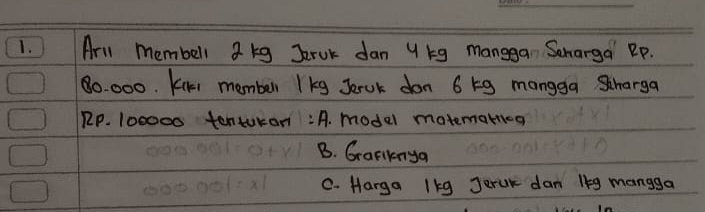 1. Arii membeli 2 kg Jeruk dan 4 kg mangga Seharga RP.
80.000. Kiki membeli 1 kg Jeruk dan 6 kg mangga Seharga
RP. 100000 tentukan : A. model matematika
B. Grafiknya
C. Harga 1kg Jeruk dan 1kg mangga